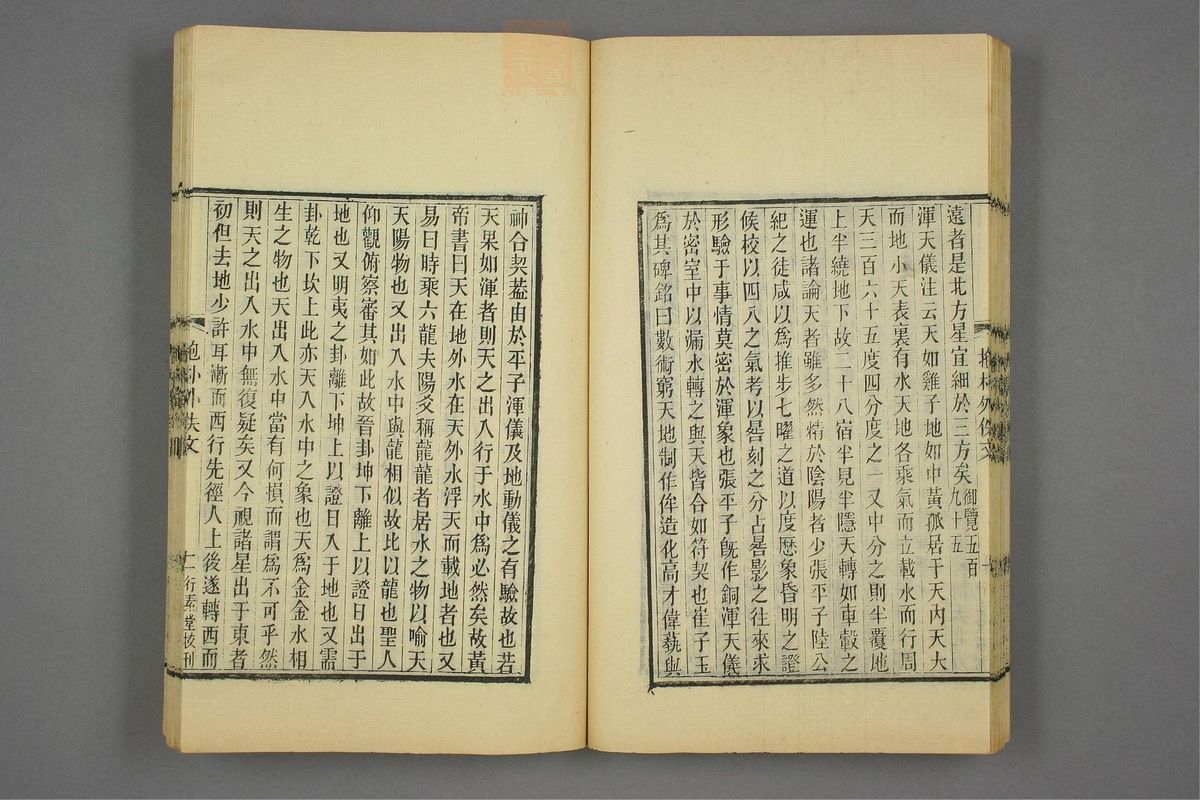 遠者是北方星宜細於三方矣御覽五百九十五
渾天儀注云天如雞子地如中黃孤居于天內天大
而地小天表裏有水天地各乘氣而立載水而行周
天三百六十五度四分度之一又中分之則半覆地
上半繞地下故二十八宿半見半隱天轉如車轂之
運也諸論天者雖多然精於陰陽者少張平子陸公
紀之徒咸以為推步七曜之道以度歷象昏明之證
候校以四八之氣考以晷刻之分占晷影之往來求
形驗于事情莫密於渾象也張平子旣作銅渾天儀
於密室中以漏水轉之與天皆合如符契也崔子玉
為其碑銘曰數術窮天地制作侔造化高才偉蓺與
神合契葢由於平子渾儀及地動儀之有驗故也若
天杲如渾者則天之出入行于水中為必然矣故黃
帝書曰天在地外水在天外水浮天而載地者也又
易曰時乘六龍夫陽爻稱龍龍者居水之物以喻天
天陽物也又出入水中與龍相似故比以龍也聖人
仰觀俯察審其如此故晉卦坤下離上以證日出于
地也又明夷之卦離下坤上以證日入于地也又需
卦乾下坎上此亦天入水中之象也天為金金水相
生之物也天出入水中當有何損而謂為不可乎然
則天之出入水中無復疑矣又今視諸星出于東者
初但去地少許耳漸而西行先徑人上後遂轉西而
抱朴外佚文
二行素堂校刊